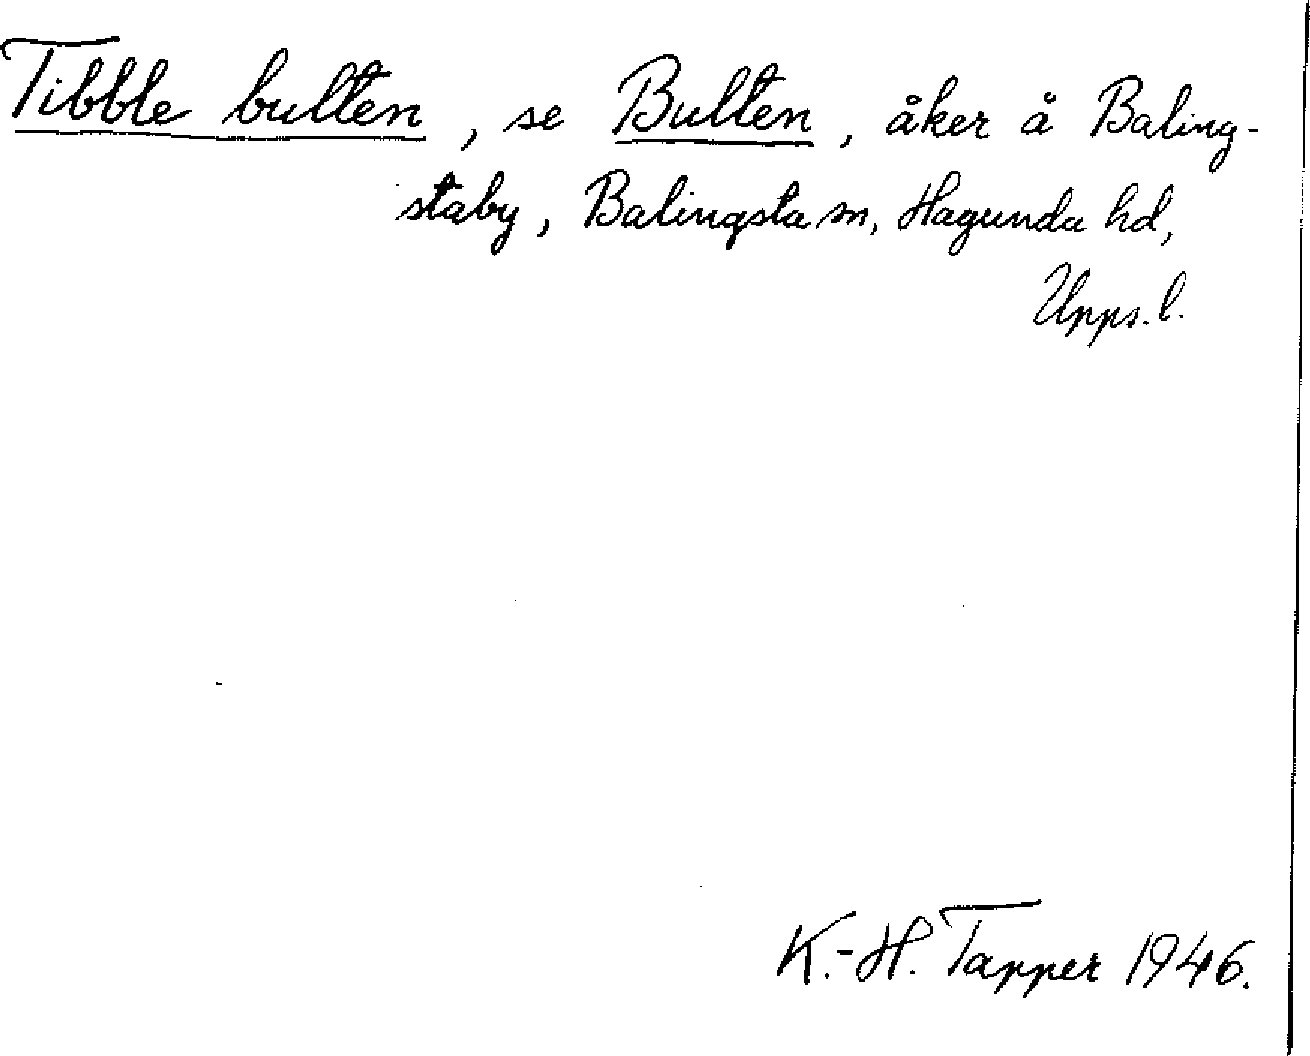 Tibble bulten, se Bulten, åker å Baling-
staby, Balingsta sn, Hagunda hd,
Upps. l.
K.-H. Tapper 1946.